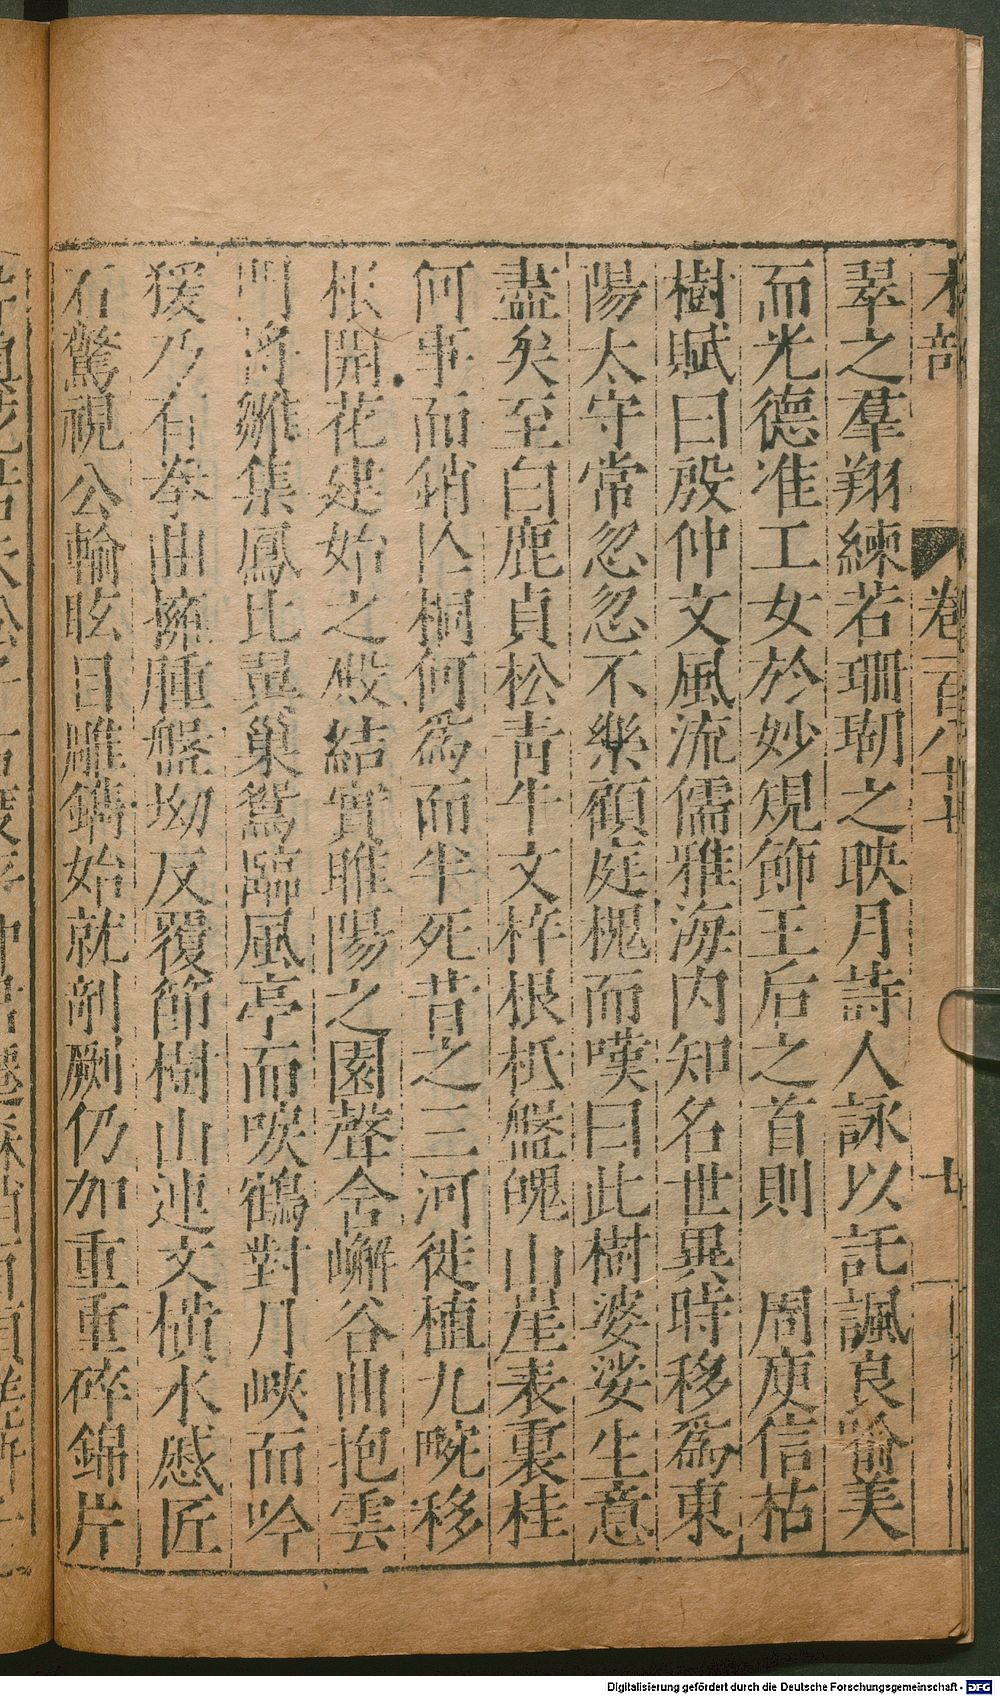 木部 卷一百八十七 七
翠之羣翔練若珊瑚之映月詩人詠以託諷良喻美
而光德准工女於妙規飾王后之首則 周庾信枯
樹賦曰殷仲文風流儒雅海内知名世異時移爲東
陽太守常忽忽不樂顧庭槐而嘆曰此樹婆娑生意
盡矣至白鹿貞松青牛文梓根柢盤魄山崖表裏桂
何事而銷亾桐何爲而半死昔之三河徙植九畹移
根開花建始之殿結實睢陽之園聲含嶰谷曲抱雲
門將雛集鳳比翼巢鴛臨風亭而唳鶴對月峽而吟
猨乃有拳曲擁腫盤坳反覆節樹山連文横水慼匠
石驚視公輸眩目雕鐫始就剞劂仍加重重碎錦片
Digitalisierung gefördert durch die Deutsche Forschungsgemeinschaft - DFG